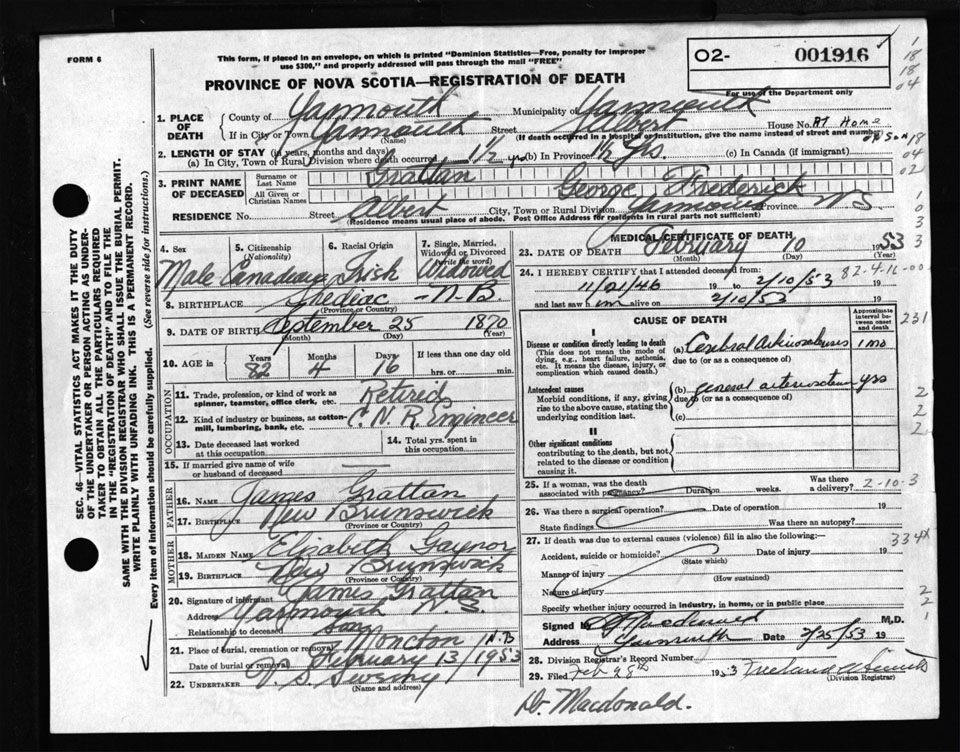 FORM 6
This form, if placed in an envelope, on which is printed "Dominion Statistics—Free, penalty for improper use $300," and properly addressed will pass through the mail "FREE"
O2- 001916
For use of the Department only
PROVINCE OF NOVA SCOTIA—REGISTRATION OF DEATH
1. PLACE OF DEATH
County of Yarmouth Municipality of Yarmouth
If in City or Town Yarmouth Street Albert House No. At Home
(Name) (If death occurred in a hospital or institution, give name instead of street and number)
2. LENGTH OF STAY (in years, months and days)
(a) In City, Town or Rural Division where death occurred 1½ yrs (b) In Province 1½ Yrs. (c) In Canada (if immigrant)
3. PRINT NAME OF DECEASED
Surname or Last Name Grattan
All Given or Christian Names George Frederick
RESIDENCE No. Street Albert City, Town or Rural Division Yarmouth Province NS
(Residence means usual place of abode. Post Office Address for residents in rural parts not sufficient)
4. Sex Male
5. Citizenship (Nationality) Canadian
6. Racial Origin Irish
7. Single, Married, Widowed or Divorced (write the word) Widowed
8. BIRTHPLACE Shediac - N.B.
(Province or Country)
9. DATE OF BIRTH September 25 1870
(Month) (Day) (Year)
10. AGE in Years 82 Months 4 Days 16 If less than one day old hrs. or min.
OCCUPATION
11. Trade, profession, or kind of work as spinner, teamster, office clerk, etc. Retired
12. Kind of industry or business, as cotton-mill, lumbering, bank, etc. C.N.R. Engineer
13. Date deceased last worked at this occupation
14. Total yrs. spent in this occupation
15. If married give name of wife or husband of deceased —
FATHER
16. NAME James Grattan
17. BIRTHPLACE New Brunswick
(Province or Country)
MOTHER
18. MAIDEN NAME Elizabeth Gaynor
19. BIRTHPLACE New Brunswick
(Province or Country)
20. Signature of informant James Grattan
Address Yarmouth N.S.
Relationship to deceased Son
21. Place of burial, cremation or removal Moncton N.B
Date of burial or removal February 13/1953
22. UNDERTAKER V. S. Sweeny
(Name and address)
MEDICAL CERTIFICATE OF DEATH
23. DATE OF DEATH February 10 1953
(Month) (Day)
24. I HEREBY CERTIFY that I attended deceased from 82-4-16-00
11/21/46 19 to 2/10/53 19
and last saw him alive on 2/10/53 19
CAUSE OF DEATH
Approximate interval between onset and death
I
Disease or condition directly leading to death
(This does not mean the mode of dying, e.g., heart failure, asthenia, etc. It means the disease, injury, or complication which caused death.)
(a) Cerebral Arteriosclerosis 1 mo
due to (or as a consequence of)
Antecedent causes
Morbid conditions, if any, giving rise to the above cause, stating the underlying condition last.
(b) general arteriosclerosis yrs
due to (or as a consequence of)
(c)
II
Other significant conditions contributing to the death, but not related to the disease or condition causing it.
25. If a woman, was the death associated with pregnancy? Duration weeks. Was there a delivery? 2-10-3
26. Was there a surgical operation? Date of operation 19
State findings Was there an autopsy?
27. If death was due to external causes (violence) fill in also the following:-
Accident, suicide or homicide? Date of injury 19
(State which)
Manner of injury
(How sustained)
Nature of injury
Specify whether injury occurred in industry, in home, or in public place
Signed by Macdonald M.D.
Address Yarmouth Date 2/25/53 19
28. Division Registrar's Record Number
29. Filed Feb 28th 1953
(Division Registrar)
Dr. Macdonald.
1
18
18
04
18
04
02
3
3
231
2
2
2
334x
2
2
1
SEC. 46—VITAL STATISTICS ACT MAKES IT THE DUTY
OF THE UNDERTAKER OR PERSON ACTING AS UNDER-
TAKER TO OBTAIN ALL THE PARTICULARS REQUIRED
IN THE "REGISTRATION OF DEATH" AND TO FILE THE
SAME WITH THE DIVISION REGISTRAR WHO SHALL ISSUE THE BURIAL PERMIT.
WRITE PLAINLY WITH UNFADING INK. THIS IS A PERMANENT RECORD.
Every item of information should be carefully supplied. (See reverse side for instructions.)